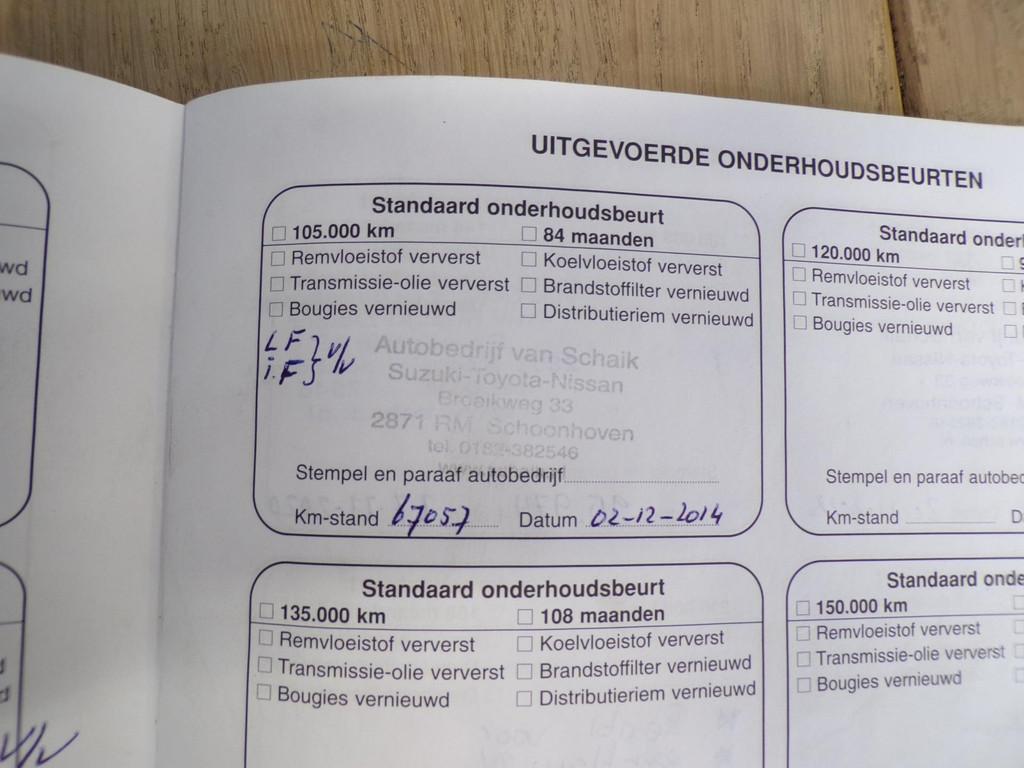 wd
wd
UITGEVOERDE ONDERHOUDSBEURTEN
Standaard onderhoudsbeurt
105.000 km 84 maanden
Remvloeistof ververst Koelvloeistof ververst
Transmissie-olie ververst Brandstoffilter vernieuwd
Bougies vernieuwd Distributieriem vernieuwd
LF } v/v
i.F
Autobedrijf van Schaik
Suzuki-Toyota-Nissan
Broeikweg 33
2871 RM Schoonhoven
tel. 0182-382546
Stempel en paraaf autobedrijf
Km-stand 67057 Datum 02-12-2014
Standaard onderh
120.000 km 9
Remvloeistof ververst K
Transmissie-olie ververst
Bougies vernieuwd
Stempel en paraaf autobed
Km-stand D
Standaard onderhoudsbeurt
135.000 km 108 maanden
Remvloeistof ververst Koelvloeistof ververst
Transmissie-olie ververst Brandstoffilter vernieuwd
Bougies vernieuwd Distributieriem vernieuwd
Standaard onde
150.000 km
Remvloeistof ververst
Transmissie-olie ververst
Bougies vernieuwd
d
v/v